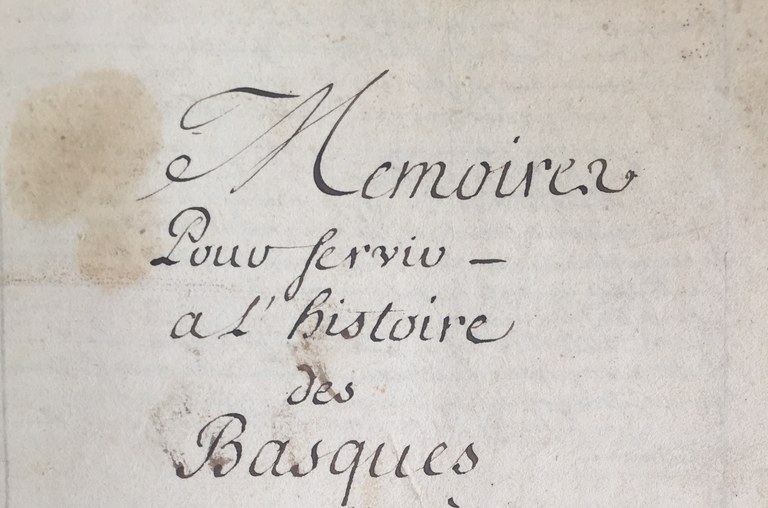 Memoires
Pour servir –
a L'histoire
des
Basques